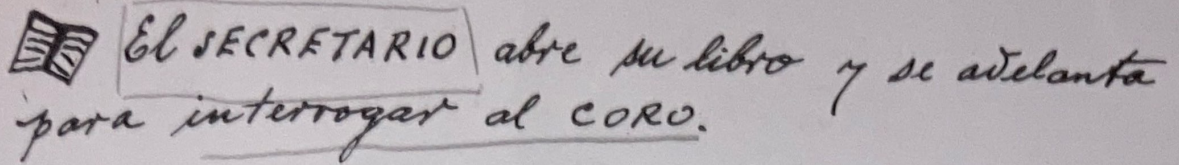 El SECRETARIO abre su libro y se adelanta
para interrogar al CORO.